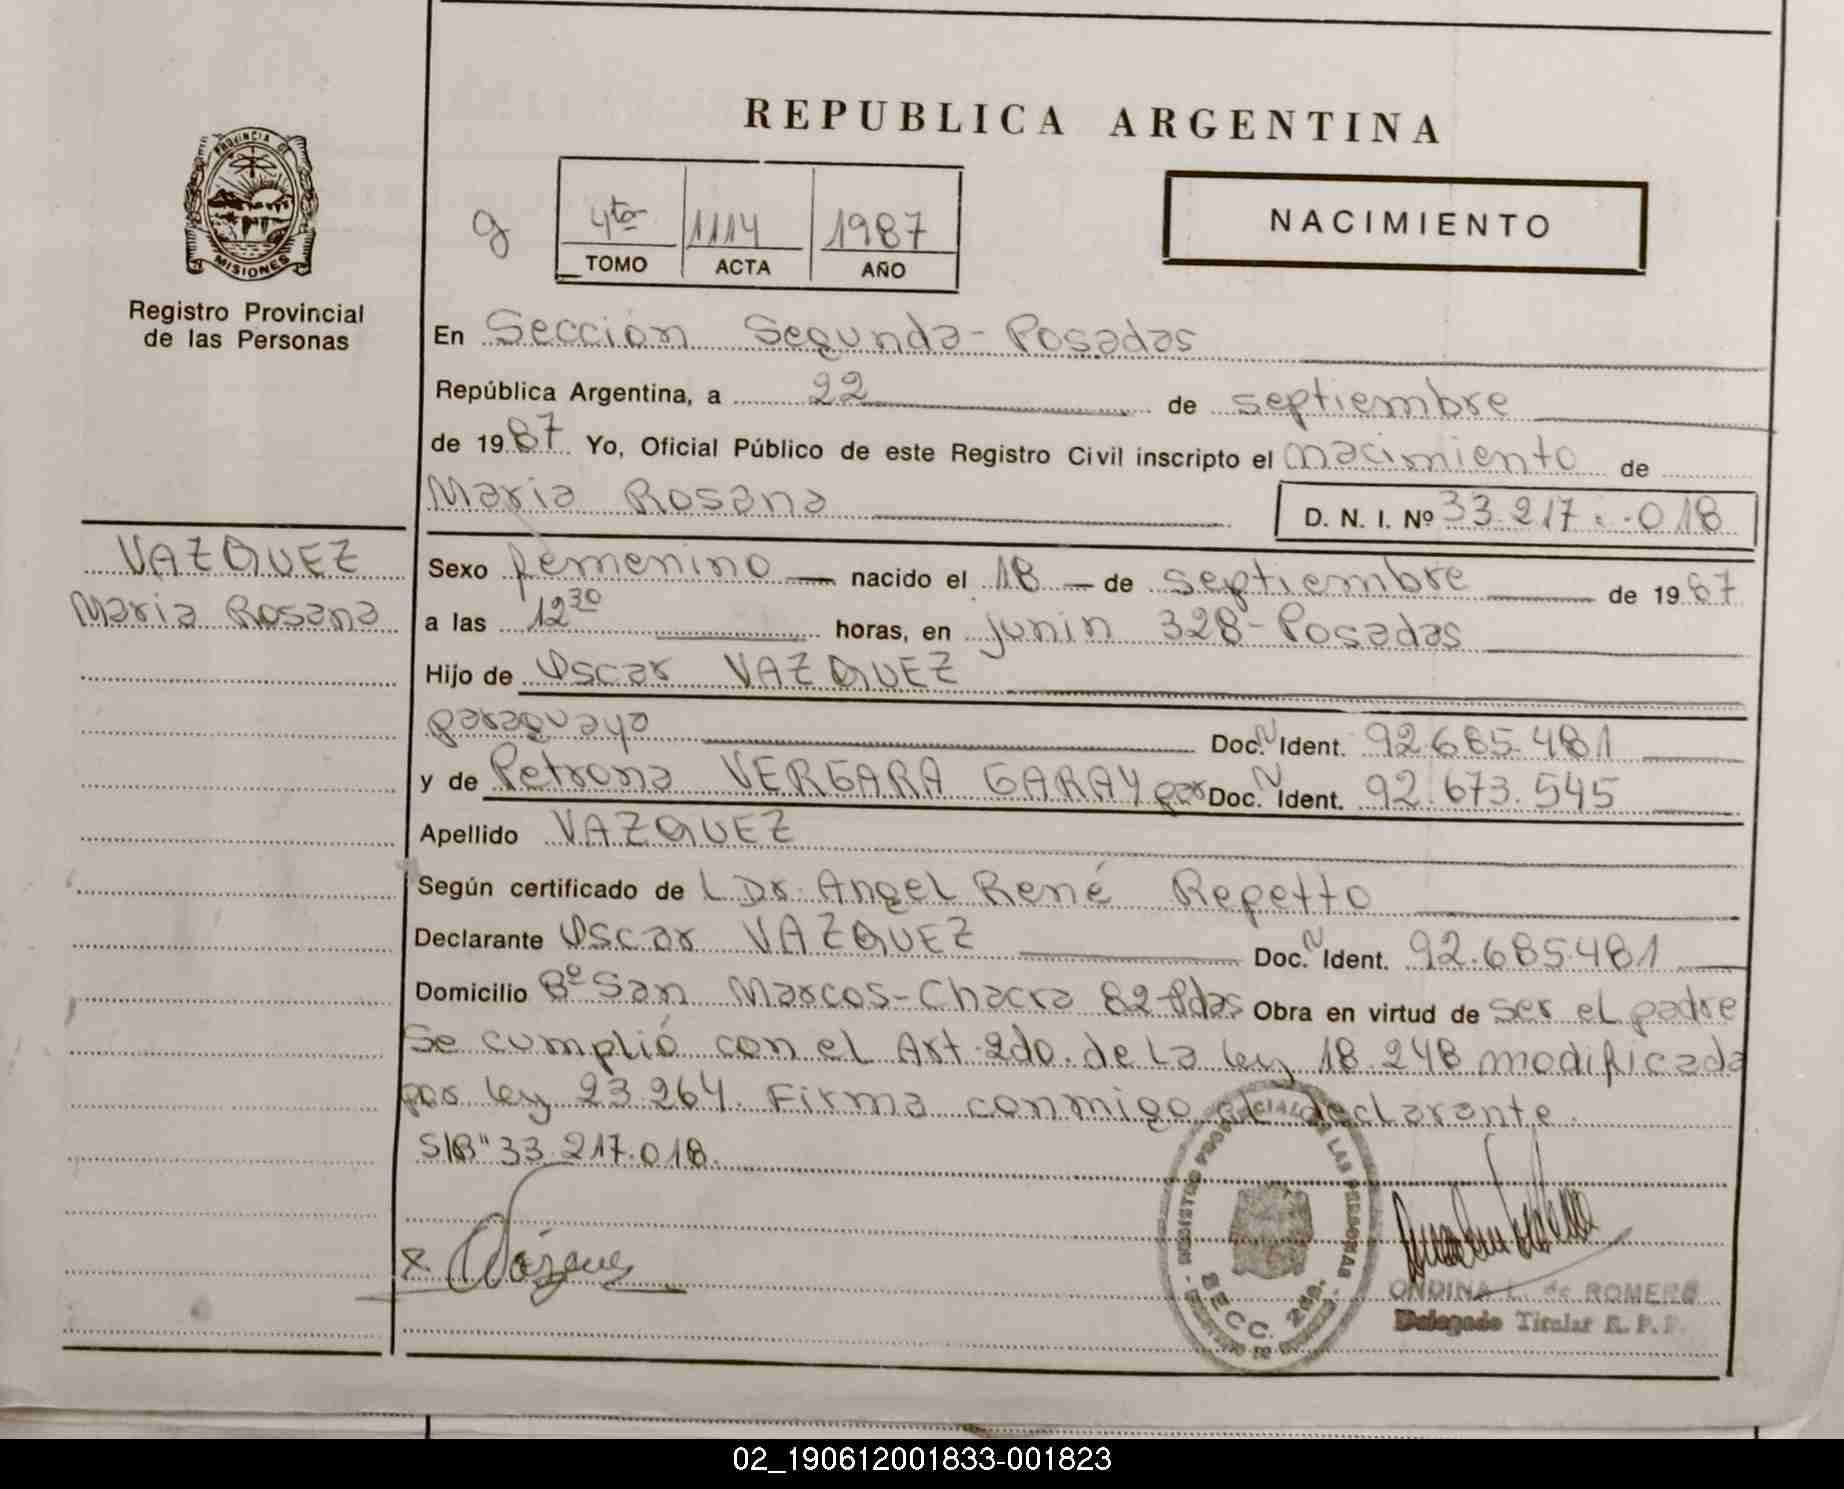 REPUBLICA ARGENTINA
PROVINCIA DE
MISIONES
Registro Provincial
de las Personas
g
4to 1114 1987
TOMO ACTA AÑO
NACIMIENTO
En Sección Segunda-Posadas
República Argentina, a 22 de septiembre
de 1987 Yo, Oficial Público de este Registro Civil inscripto el nacimiento de
Maria Rosana D. N. I. Nº 33.217.018
VAZQUEZ
Maria Rosana
Sexo femenino nacido el 18 de septiembre de 1987
a las 12 30 horas, en junin 328-Posadas
Hijo de Oscar VAZQUEZ
paraguayo Doc. N Ident. 92.685.481
y de Petrona VERGARA GARAY par Doc. N Ident. 92.673.545
Apellido VAZQUEZ
Según certificado de L Dr. Angel René Repetto
Declarante Oscar VAZQUEZ Doc. N Ident. 92.685.481
Domicilio Bº San Marcos-Chacra 82-Pdas Obra en virtud de ser el padre
Se cumplió con el Art. 2do. de la ley 18.248 modificada
por ley 23.264. Firma conmigo el declarante.
S/B" 33.217.018.
x Vázquez
SECC. 2da.
ONDINA L. de ROMERO
Delegado Titular R. P. P.
02_190612001833-001823